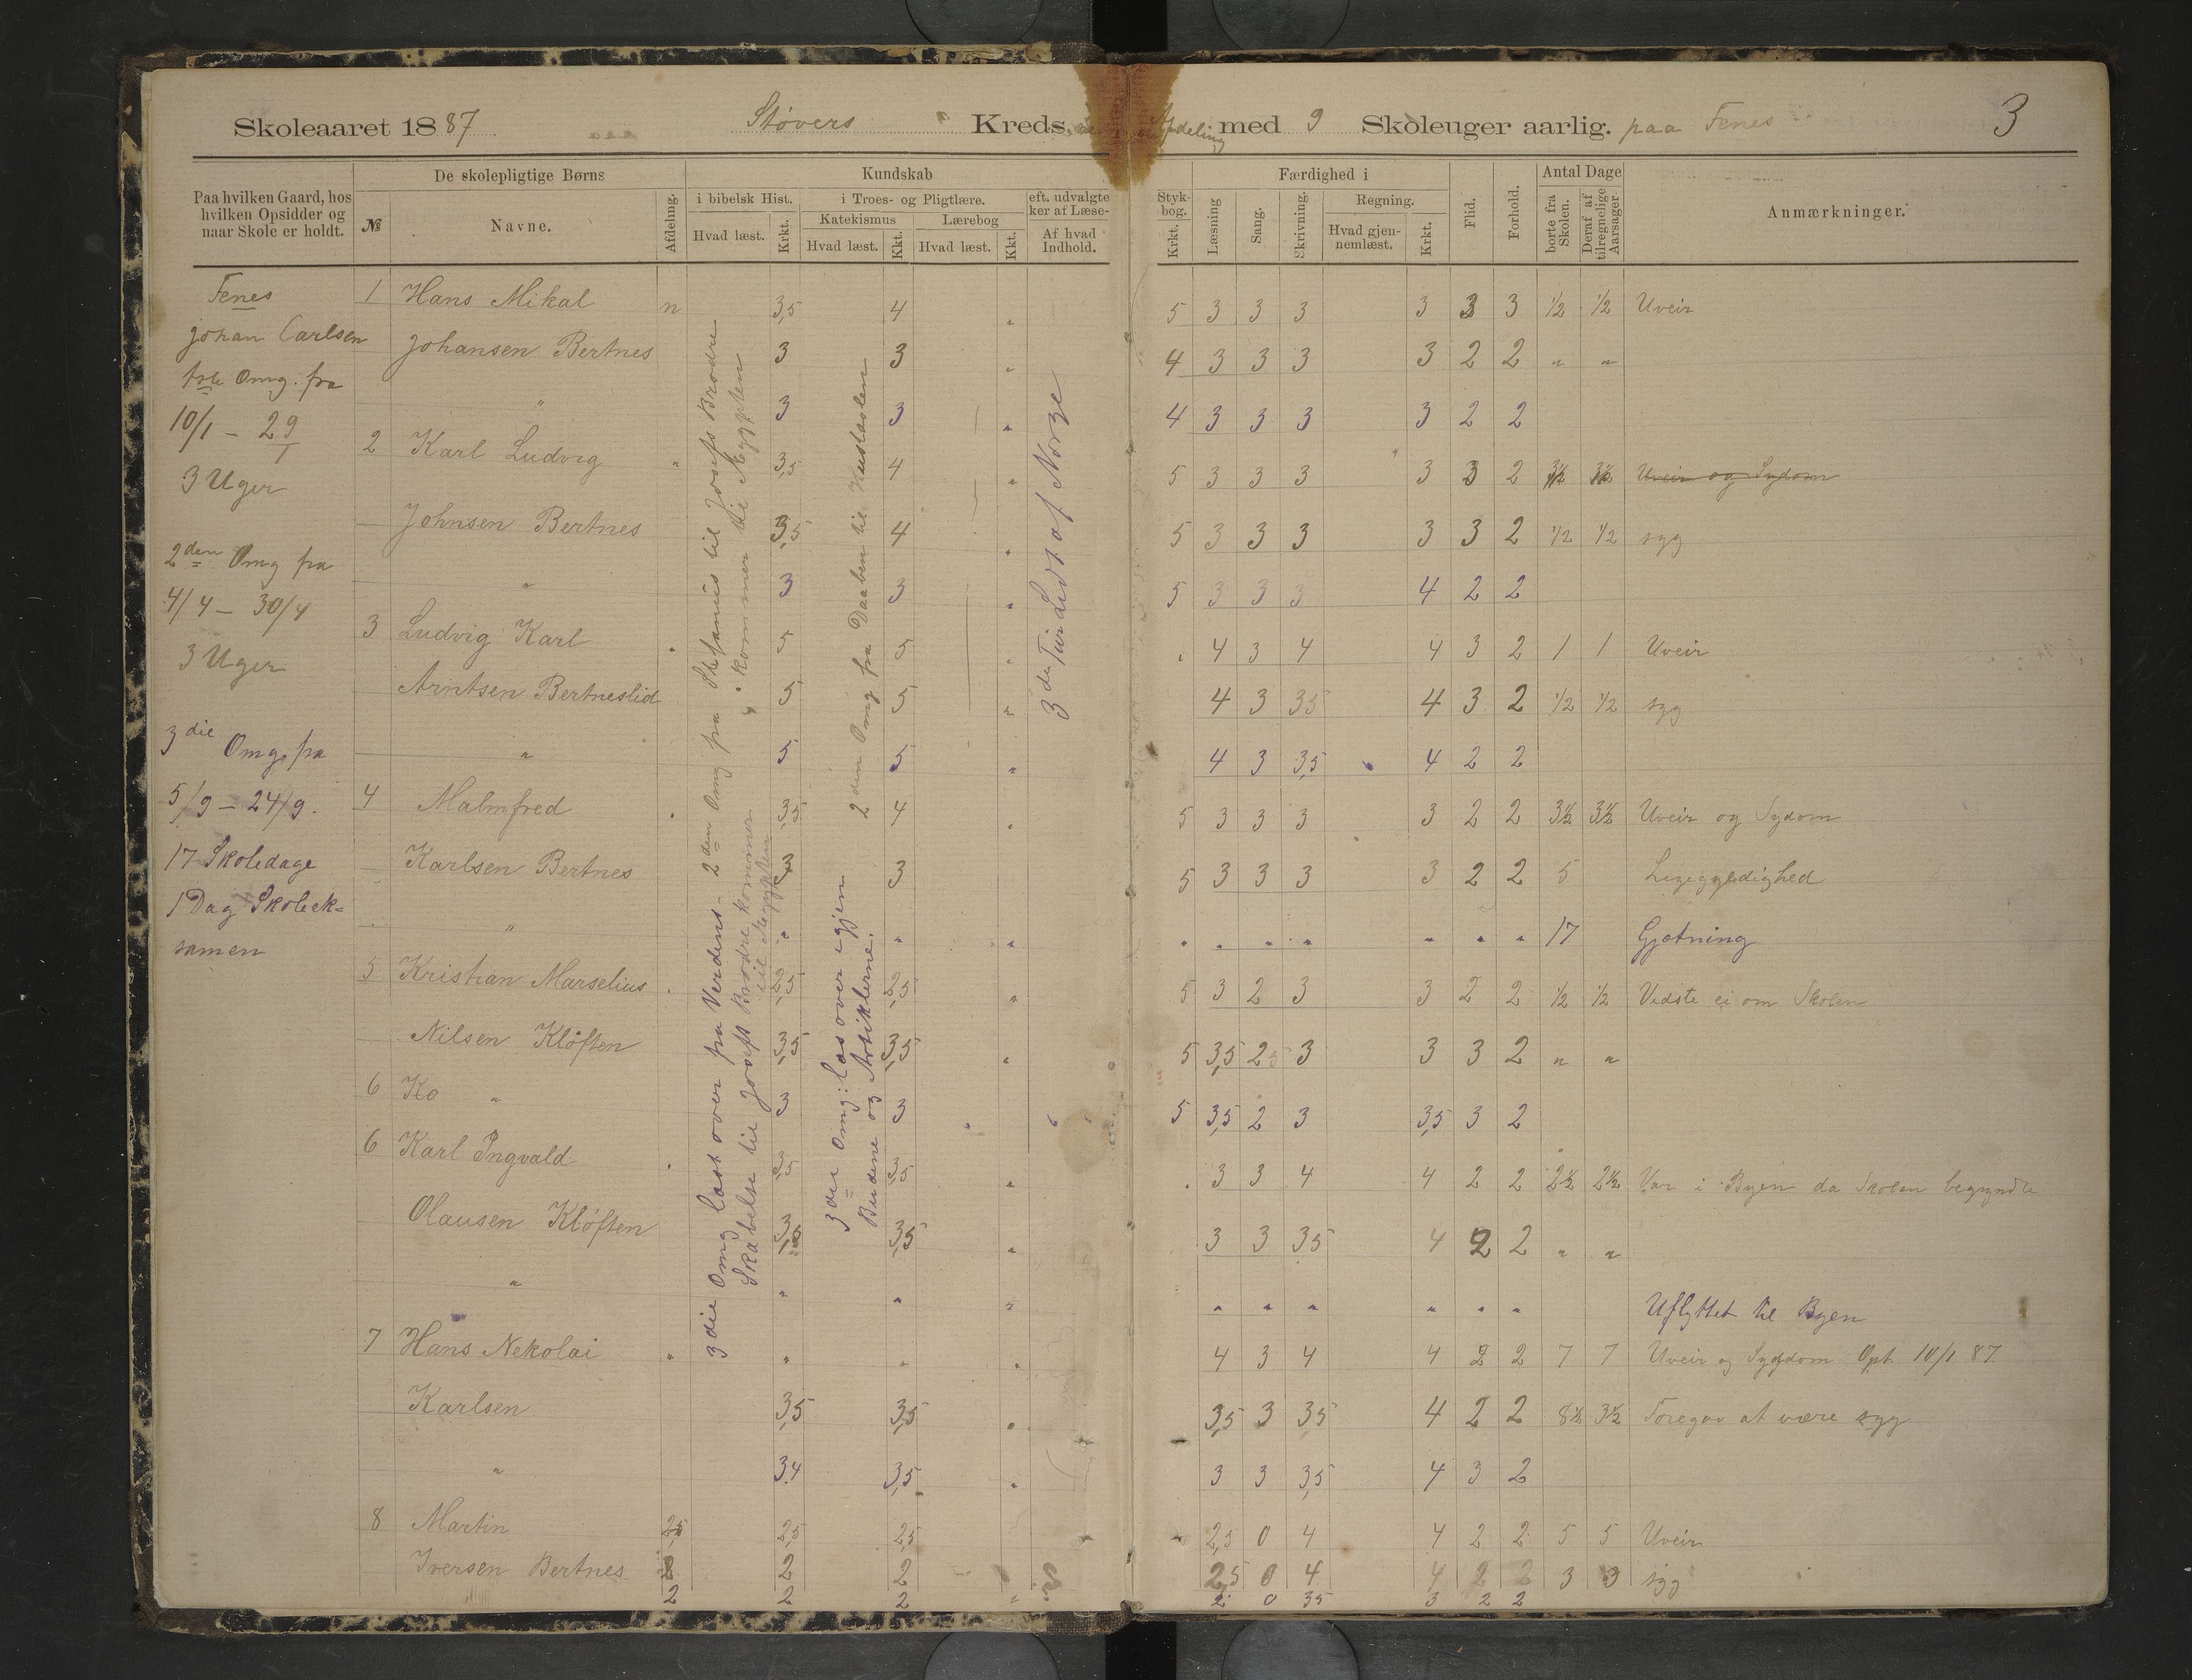 Skoleaaret 1887 Støvers Kreds. Afdeling med 9 Skoleuger aarlig. paa Fenes 3
Paa hvilken Gaard, hos hvilken Opsidder og naar Skole er holdt.
De skolepligtige Børns
№ Navne. Afdelung.
Kundskab
i bibelsk Hist. Hvad læst. Krkt.
i Troes- og Pligtlære.
Katekismus Hvad læst. Kkt.
Lærebog Hvad læst. Kkt.
eft. udvalgte Styk-
ker af Læse- bog.
Af hvad Indhold. Krkt.
Færdighed i
Læsning Sang. Skrivning.
Regning. Hvad gjennemlæst. Krkt.
Flid. Forhold.
Antal Dage
borte fra Skolen. Deraf af tilregnelige Aarsager.
Anmærkninger.
Fenes
Johan Carlsen
1ste Omg. fra
10/1 - 29/1
3 Uger
2den Omg fra
4/4 - 30/4
3 Uger
3die Omg. fra
5/9 - 24/9.
17 Skoledage
1 Dag Skolek=
samen
2den Omg fra Stefanus til Josefs Brødre
kommer til Ægypten
3die Omg læst over fra Verdens-
Skabelse til Josefs Brødre kommer
til Ægypten
2den Omg fra Daaben til Hustavlen
3die Omg: læs over igjen
Budene og Artiklerne.
3die Tur Ledt af Norge
1 Hans Mikal n 3,5 4 " 5 3 3 3 3 3 3 1/2 1/2 Uveir
Johansen Bertnes 3 3 " 4 3 3 3 3 2 2 " "
" 3 3 " 4 3 3 3 3 2 2
2 Karl Ludvig " 3,5 4 " 5 3 3 3 3 3 2 3½ 3½ Uveir og Sydom
Johnsen Bertnes 3,5 4 " 5 3 3 3 3 3 2 1/2 1/2 syg
" 3 3 " 5 3 3 3 4 2 2
3 Ludvig Karl " 5 5 " " 4 3 4 4 3 2 1 1 Uveir
Arntsen Bertneslid 5 5 " 4 3 35 4 3 2 1/2 1/2 syg
" 5 5 " 4 3 3,5 4 2 2
4 Malmfred " 3,5 4 " 5 3 3 3 3 2 2 3½ 3½ Uveir og Sydom
Karlsen Bertnes 3 3 5 3 3 3 3 2 2 5 Ligegyldighed
" " " " " " " " " " " 17 Gjætning
5 Kristian Marselius " 2,5 2,5 " 5 3 2 3 3 2 2 1/2 1/2 Vidste ei om Skolen
Nilsen Kløften 3,5 3,5 " 5 3,5 25 3 3 3 2 " "
6 Ko " 3 3 5 3,5 2 3 3,5 3 2
6 Karl Ingvald " 3,5 3,5 " " 3 3 4 4 2 2 2½ 2½ Var i Byen da Skolen begyndte
Olausen Kløften 3,5 3,5 " 3 3 35 4 2 2 " "
" " " " " " " " " " Uflyttet til Byen
7 Hans Nekolai " " " " 4 3 4 4 2 2 7 7 Uveir og Sygdom Opt 10/1 87
Karlsen 3,5 3,5 " 3,5 3 35 4 2 2 8½ 3½ Foregav at være syg
" 3.4 3,5 " 3 3 3,5 4 3 2
8 Martin 2,5 2,5 2,5 2,5 0 4 4 2 2 5 5 Uveir
Iversen Bertnes 2 2 2 25 0 4 4 2 2 3 3 syg
2 2 2 " 2 0 35 3 2 2